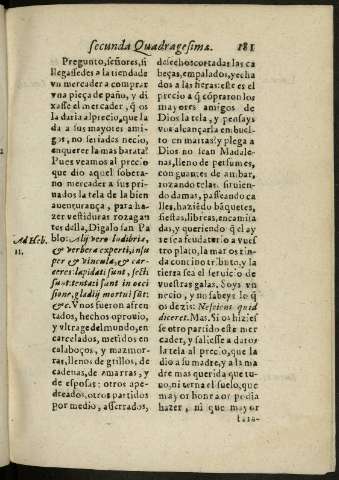 secunda Quadragesima. 181
Pregunto, señores, si
llegassedes a la tienda de
vn mercader a comprar
vna pieça de paño, y di
xasse el mercader, q̃ os
la daria al precio, que la
da a sus mayores ami-
gos, no seriades necio,
en querer la mas barata?
Pues veamos al precio
que dio aquel sobera-
no mercader a sus pri-
uados la tela de la bien
auenturança, para ha-
zer vestiduras rozagan
tes della, Digalo san Pa
blo: Alij vero ludibria,
& verbera experti, insu
per & vincula, & car-
ceres: lapidati sunt, secti
sunt, tentati sunt in occi
sione, gladij mortui sũt:
&c. Vnos fueron afren
tados, hechos oprouio,
y vltrage del mundo, en
carcelados, metidos en
calaboços, y mazmor-
ras, llenos de grillos, de
cadenas, de amarras, y
de esposas: otros ape-
dreados, otros partidos
por medio, asserrados,
Ad Heb.
11.
desechos cortadas las ca
beças, empalados, y echa
dos a las heras: este es el
precio a q̃ cõpraron los
mayores amigos de
Dios la tela, y pensays
vos alcançarla en buel-
to en martas? y plega a
Dios no sean Madale-
nas, lleno de perfumes,
con guantes de ambar,
rozando telas. siruien-
do damas, passeando ca
lles, haziẽdo bãquetes,
fiestas, libreas, encamisa
das, y queriendo q̃ el ay
re sea feudatario a vues
tro plato, la mar os rin-
da con su tributo, y la
tierra sea el seruicio de
vuestras galas. Soys vn
necio, y no sabeys lo q̃
os dezis: Nescitis quid
diceret. Mas. Si os hizies
se otro partido este mer
cader, y saliesse a daros
la tela al precio, que la
dio a su madre, y a la ma
dre mas querida que tu-
uo, ni terna el suelo, que
mayor honra or podia
hazer, ni que mayor